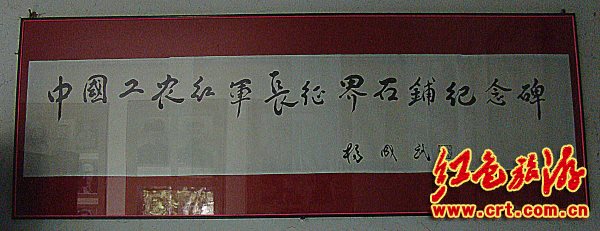 中國工农红軍長征界石鋪纪念碑
楊成武
红色旅游
www.crt.com.cn